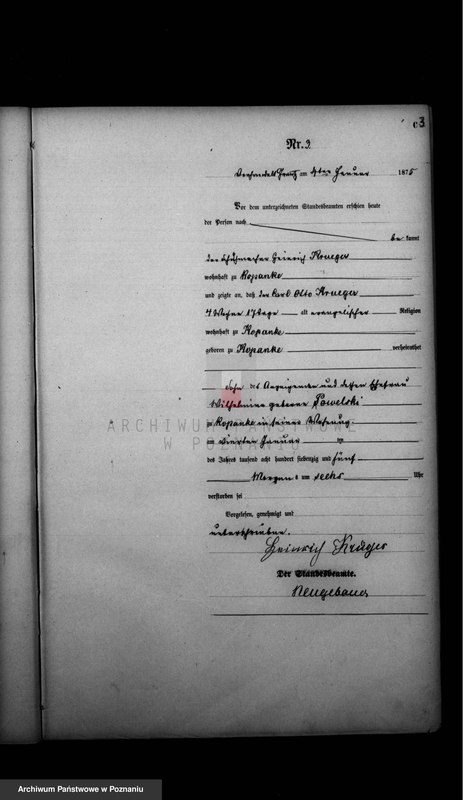 3
Nr. 3.
am 4ten Januar 1875
Vor dem unterzeichneten Standesbeamten erschien heute
der Person nach
be kannt
der Schuhmacher Heinrich Krueger
wohnhaft zu Kopanke
und zeigte an, daß der Karl Otto Krueger
4 Wochen 17 Tage alt evangelischer Religion
wohnhaft zu Kopanke
geboren zu Kopanke verheirathet
Sohn des Anzeigenden und dessen Ehefrau
Wilhelmine geborne Powelski
zu Kopanke in seiner Wohnung
am vierten Januar
des Jahres tausend acht hundert siebenzig und fünf
Morgens um sechs Uhr
verstorben sei
Vorgelesen, genehmigt und
unterschrieben.
Heinrich Krüger
Der Standesbeamte.
ARCHIWUM PAŃSTWOWE
W POZNANIU
Archiwum Państwowe w Poznaniu